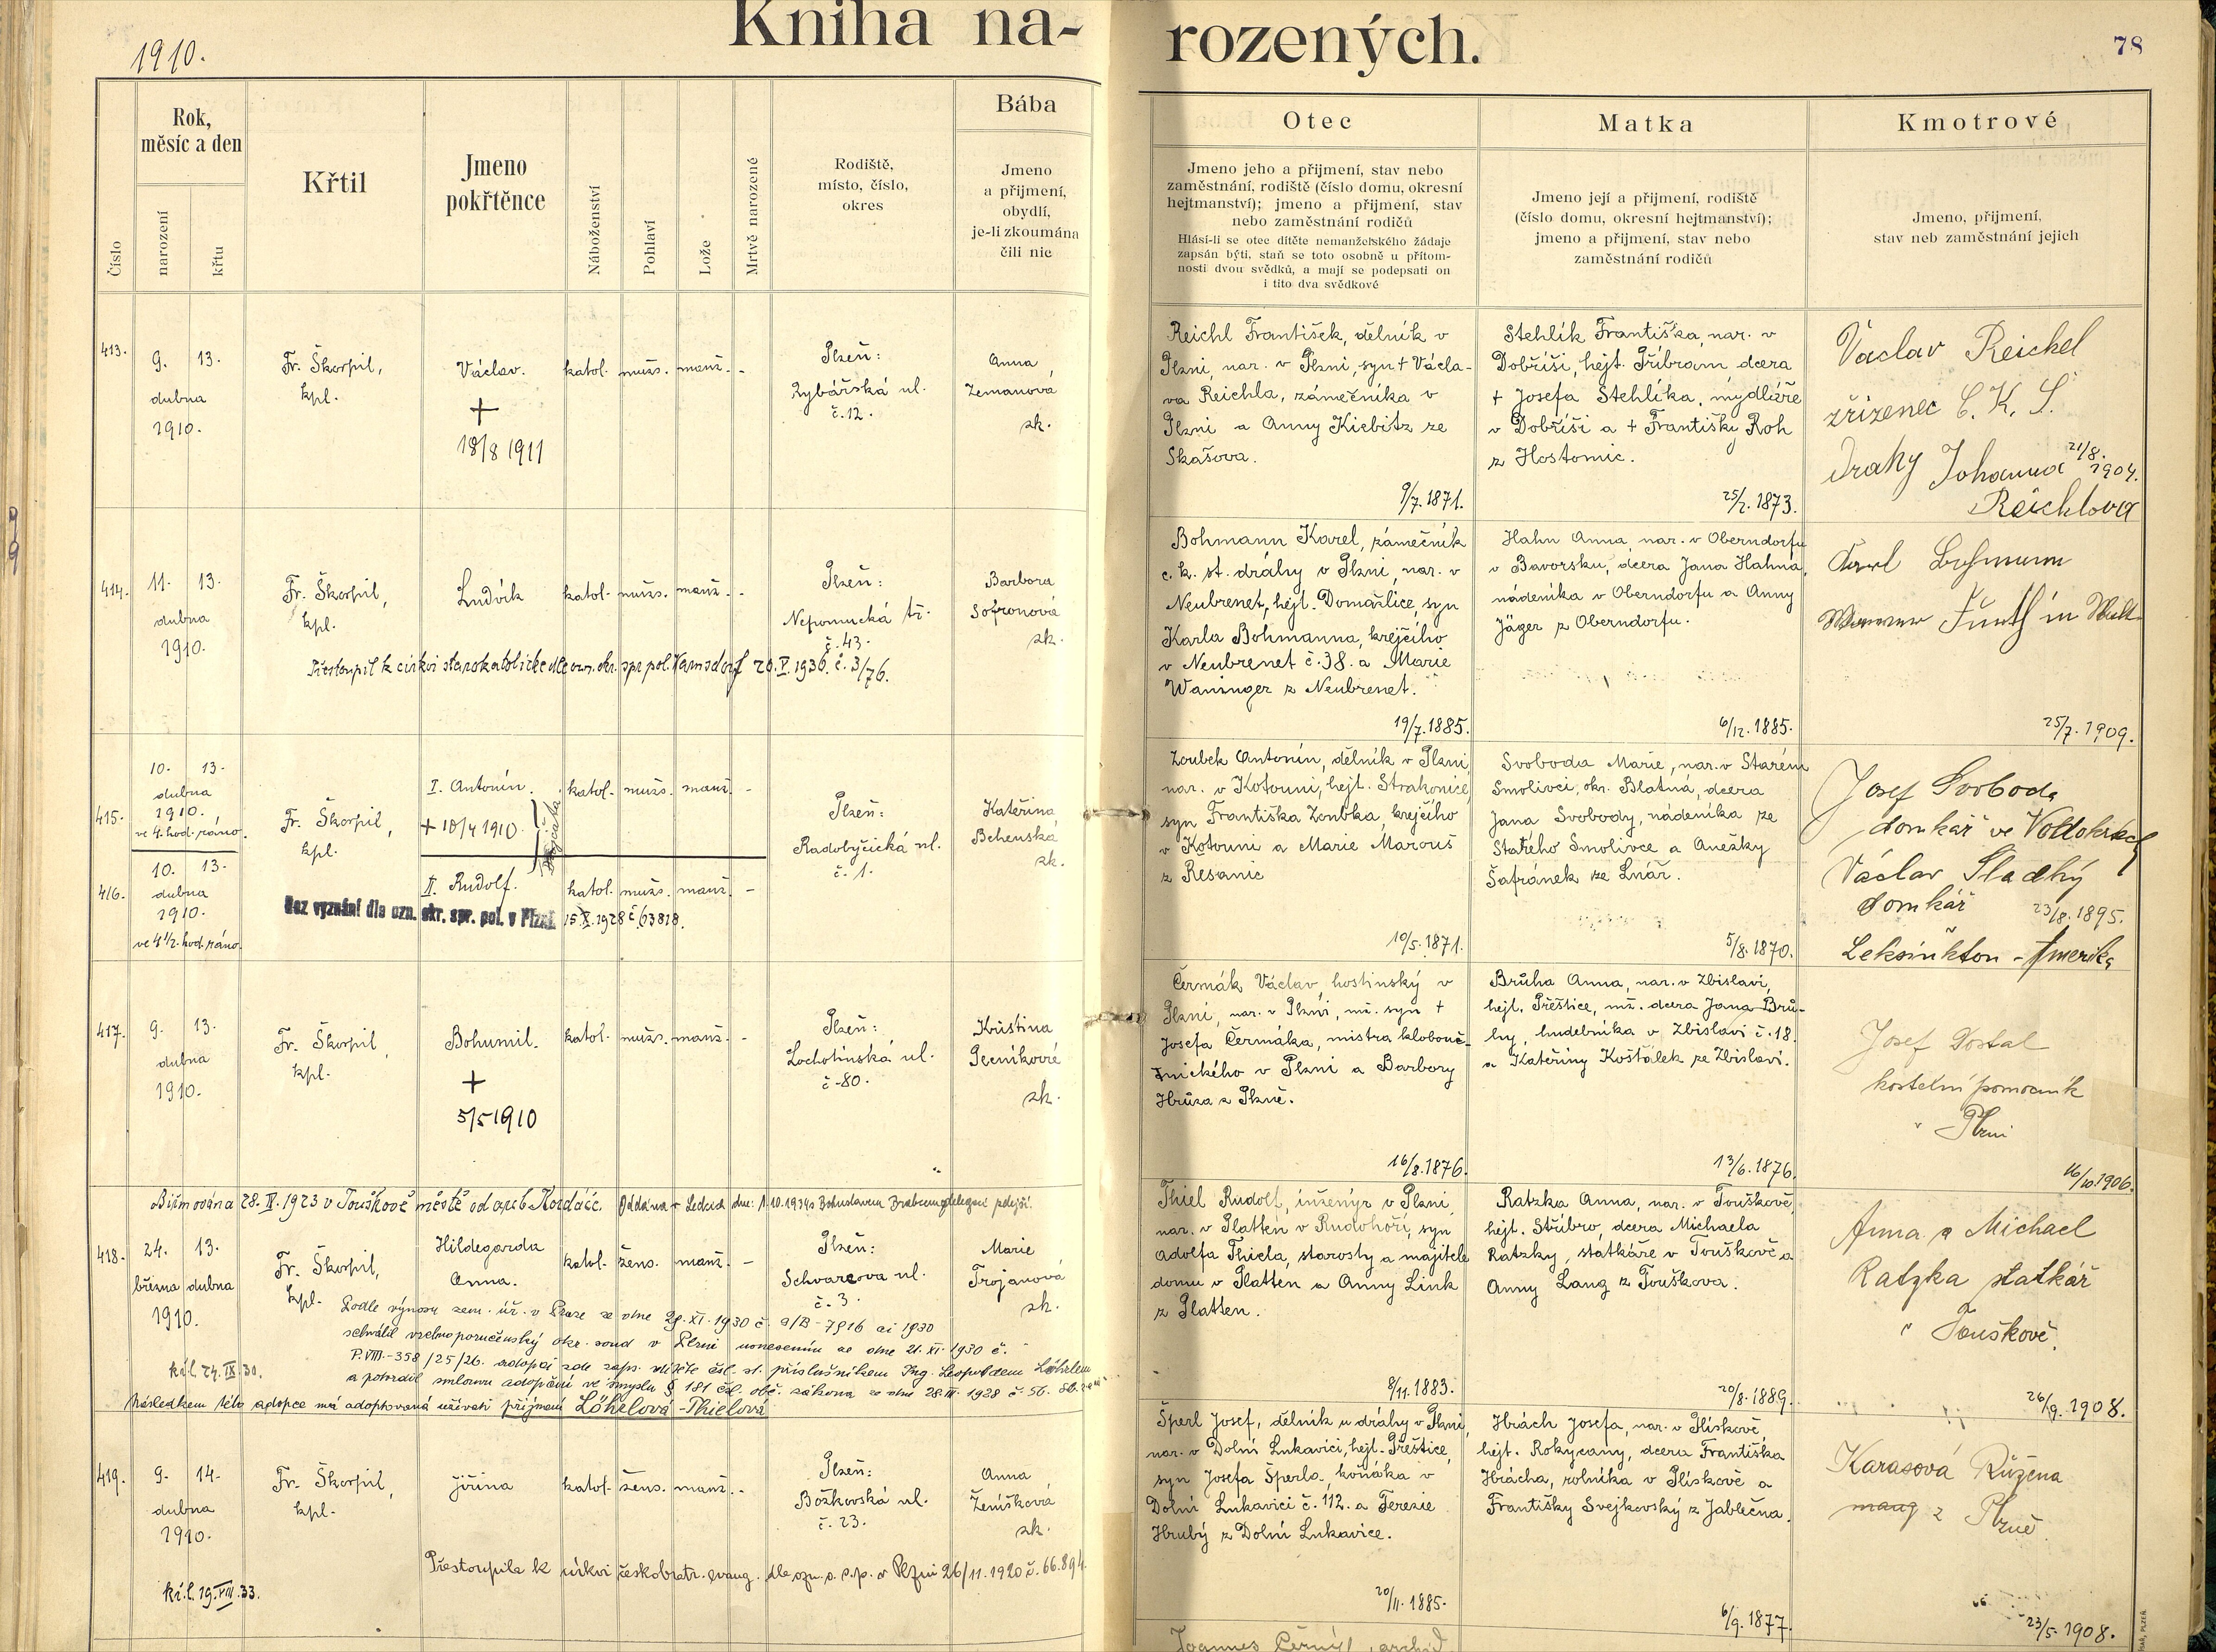 1910.
Kniha na- rozených.
78
Číslo
Rok,
měsíc a den
narození
křtu
Křtil
Jmeno
pokřtěnce
Náboženství
Pohlaví
Lože
Mrtvě narozené
Rodiště,
místo, číslo,
okres
Bába
Jmeno
a přijmení,
obydlí,
je-li zkoumána
čili nic
Otec
Jmeno jeho a přijmení, stav nebo
zaměstnání, rodiště (číslo domu, okresní
hejtmanství); jmeno a přijmení, stav
nebo zaměstnání rodičů
Hlásí-li se otec dítěte nemanželského žádaje
zapsán býti, staň se toto osobně u přítom-
nosti dvou svědků, a mají se podepsati on
i tito dva svědkové
Matka
Jmeno její a přijmení, rodiště
(číslo domu, okresní hejtmanství);
jmeno a přijmení, stav nebo
zaměstnání rodičů
Kmotrové
Jmeno, přijmení,
stav neb zaměstnání jejich
413.
9. 13.
dubna
1910.
Fr. Škorpil,
kpl.
Václav.
+
18/8 1911
katol. mužs. manž. -
Plzeň:
Rybářská ul.
č. 12.
Anna
Zemanová
zk.
Reichl František, dělník v
Plzni, nar. v Plzni, syn + Václa-
va Reichla, zámečníka v
Plzni a Anny Kiebitz ze
Skašova.
9/7. 1871.
Stehlík Františka, nar. v
Dobříši, hejt. Příbram dcera
+ Josefa Stehlíka, mydláře
v Dobříši a + Františky Roh
z Hostomic.
25/2. 1873.
Václav Reichel
zřízenec C. K. S.
Drahy Johanna
Reichlova
21/8. 1904.
414.
11. 13.
dubna
1910.
Fr. Škorpil,
kpl.
Ludvík
katol. mužs. manž. -
Plzeň:
Nepomucká tř.
č. 43.
Barbora
Sofronová
zk.
Přestoupil k církvi starokatolické dle ozn. okr. spr. pol. Varnsdorf 20. V. 1936. č. 3/76.
Bohmann Karel, zámečník
c. k. st. dráhy v Plzni, nar. v
Neubrenet, hejt. Domažlice, syn
Karla Bohmanna, krejčího
v Neubrenet č. 38. a Marie
Waninger z Neubrenet.
19/7. 1885.
Hahn Anna, nar. v Oberndorfu
v Bavorsku, dcera Jana Hahna,
nádeníka v Oberndorfu a Anny
Jäger z Oberndorfu.
6/12. 1885.
25/7. 1909.
415.
10. 13.
dubna
1910.
ve 4. hod. ráno.
Fr. Škorpil,
kpl.
I. Antonín.
+ 18/4 1910.
katol. mužs. manž. -
Plzeň:
Radobyčická ul.
č. 1.
Kateřina
Behenská
zk.
416.
10. 13.
dubna
1910.
ve 4 1/2. hod. ráno.
II. Rudolf.
katol. mužs. manž. -
Bez vyznání dle ozn. okr. spr. pol. v Plzni 15. X. 1928 č. 63818.
Zoubek Antonín, dělník v Plzni,
nar. v Kotouni, hejt. Strakonice,
syn Františka Zoubka, krejčího
v Kotouni a Marie Marouš
z Řesanic
10/5. 1871.
Svoboda Marie, nar. v Starém
Smolivci, okr. Blatná, dcera
Jana Svobody, nádeníka ze
Starého Smolivce a Anežky
Šafránek ze Lnář.
5/8. 1870.
Josef Svoboda
domkář ve
Václav Sladký
domkář
23/8. 1895.
Leksinkton - Amerika
417.
9. 13.
dubna
1910.
Fr. Škorpil,
kpl.
Bohumil.
+
5/5 1910
katol. mužs. manž. -
Plzeň:
Lochotínská ul.
č. 80.
Kristina
Pecníková
zk.
Čermák Václav, hostinský v
Plzni, nar. v Plzni, mž. syn +
Josefa Čermáka, mistra klobouč-
nického v Plzni a Barbory
Hrůza z Plzně.
16/8. 1876.
Brůha Anna, nar. v Zbislavi,
hejt. Přeštice, mž. dcera Jana Brů-
hy, hudebníka v Zbislavi č. 18.
a Kateřiny Košťálek ze Zbislavi.
13/6. 1876.
Josef Dostal
kostelní pomocník
v Plzni
16/10. 1906.
Biřmována 28. IV. 1923 v Touškově městě od arcib. Kordáče.
418.
24. 13.
března dubna
1910.
Fr. Škorpil,
kpl.
Hildegarda
Anna.
katol. žens. manž. -
Plzeň:
Schwarzova ul.
č. 3.
Marie
Trojanová
zk.
Podle výnosu zem. úř. v Praze ze dne 29. XI. 1930 č. a/B-7916 ai 1930
schválil vrchnoporučenský okr. soud v Plzni usnesením ze dne 21. XI. 1930 č.
P. VIII.-358/25/26. adopci zde zaps. dítěte čsl. st. příslušníkem Ing. Leopoldem Löhrlem
a potvrdil smlouvu adopční ve smyslu § 181 čsl. obč. zákona ze dne 28. III. 1928 č. 56. Sb.
Následkem této adopce má adoptovaná užívati příjmení Löhelová - Thielová
k. l. 24. IX. 30.
Thiel Rudolf, inženýr v Plzni,
nar. v Platten v Rudohoří, syn
Adolfa Thiela, starosty a majitele
domu v Platten a Anny Link
z Platten.
8/11. 1883.
Ratzka Anna, nar. v Touškově,
hejt. Stříbro, dcera Michaela
Ratzky, statkáře v Touškově a
Anny Lang z Touškova.
20/8. 1889.
Anna a Michael
Ratzka statkář
v Touškově.
26/9. 1908.
419.
9. 14.
dubna
1910.
Fr. Škorpil,
kpl.
Jiřina
katol. žens. manž. -
Plzeň:
Božkovská ul.
č. 23.
Anna
Ženíšková
zk.
Přestoupila k církvi českobratr. evang. dle ozn. o. s. p. v Plzni 26/11. 1920 č. 66.894.
k. l. 19. VIII. 33.
Šperl Josef, dělník u dráhy v Plzni,
nar. v Dolní Lukavici, hejt. Přeštice,
syn Josefa Šperla, koňáka v
Dolní Lukavici č. 112. a Terezie
Hrubý z Dolní Lukavice.
20/11. 1885.
Hrách Josefa, nar. v Plískově,
hejt. Rokycany, dcera Františka
Hrácha, rolníka v Plískově a
Františky Svejkovský z Jablečna.
6/9. 1877.
Karasová Růžena
z Plzně
23/5. 1908.